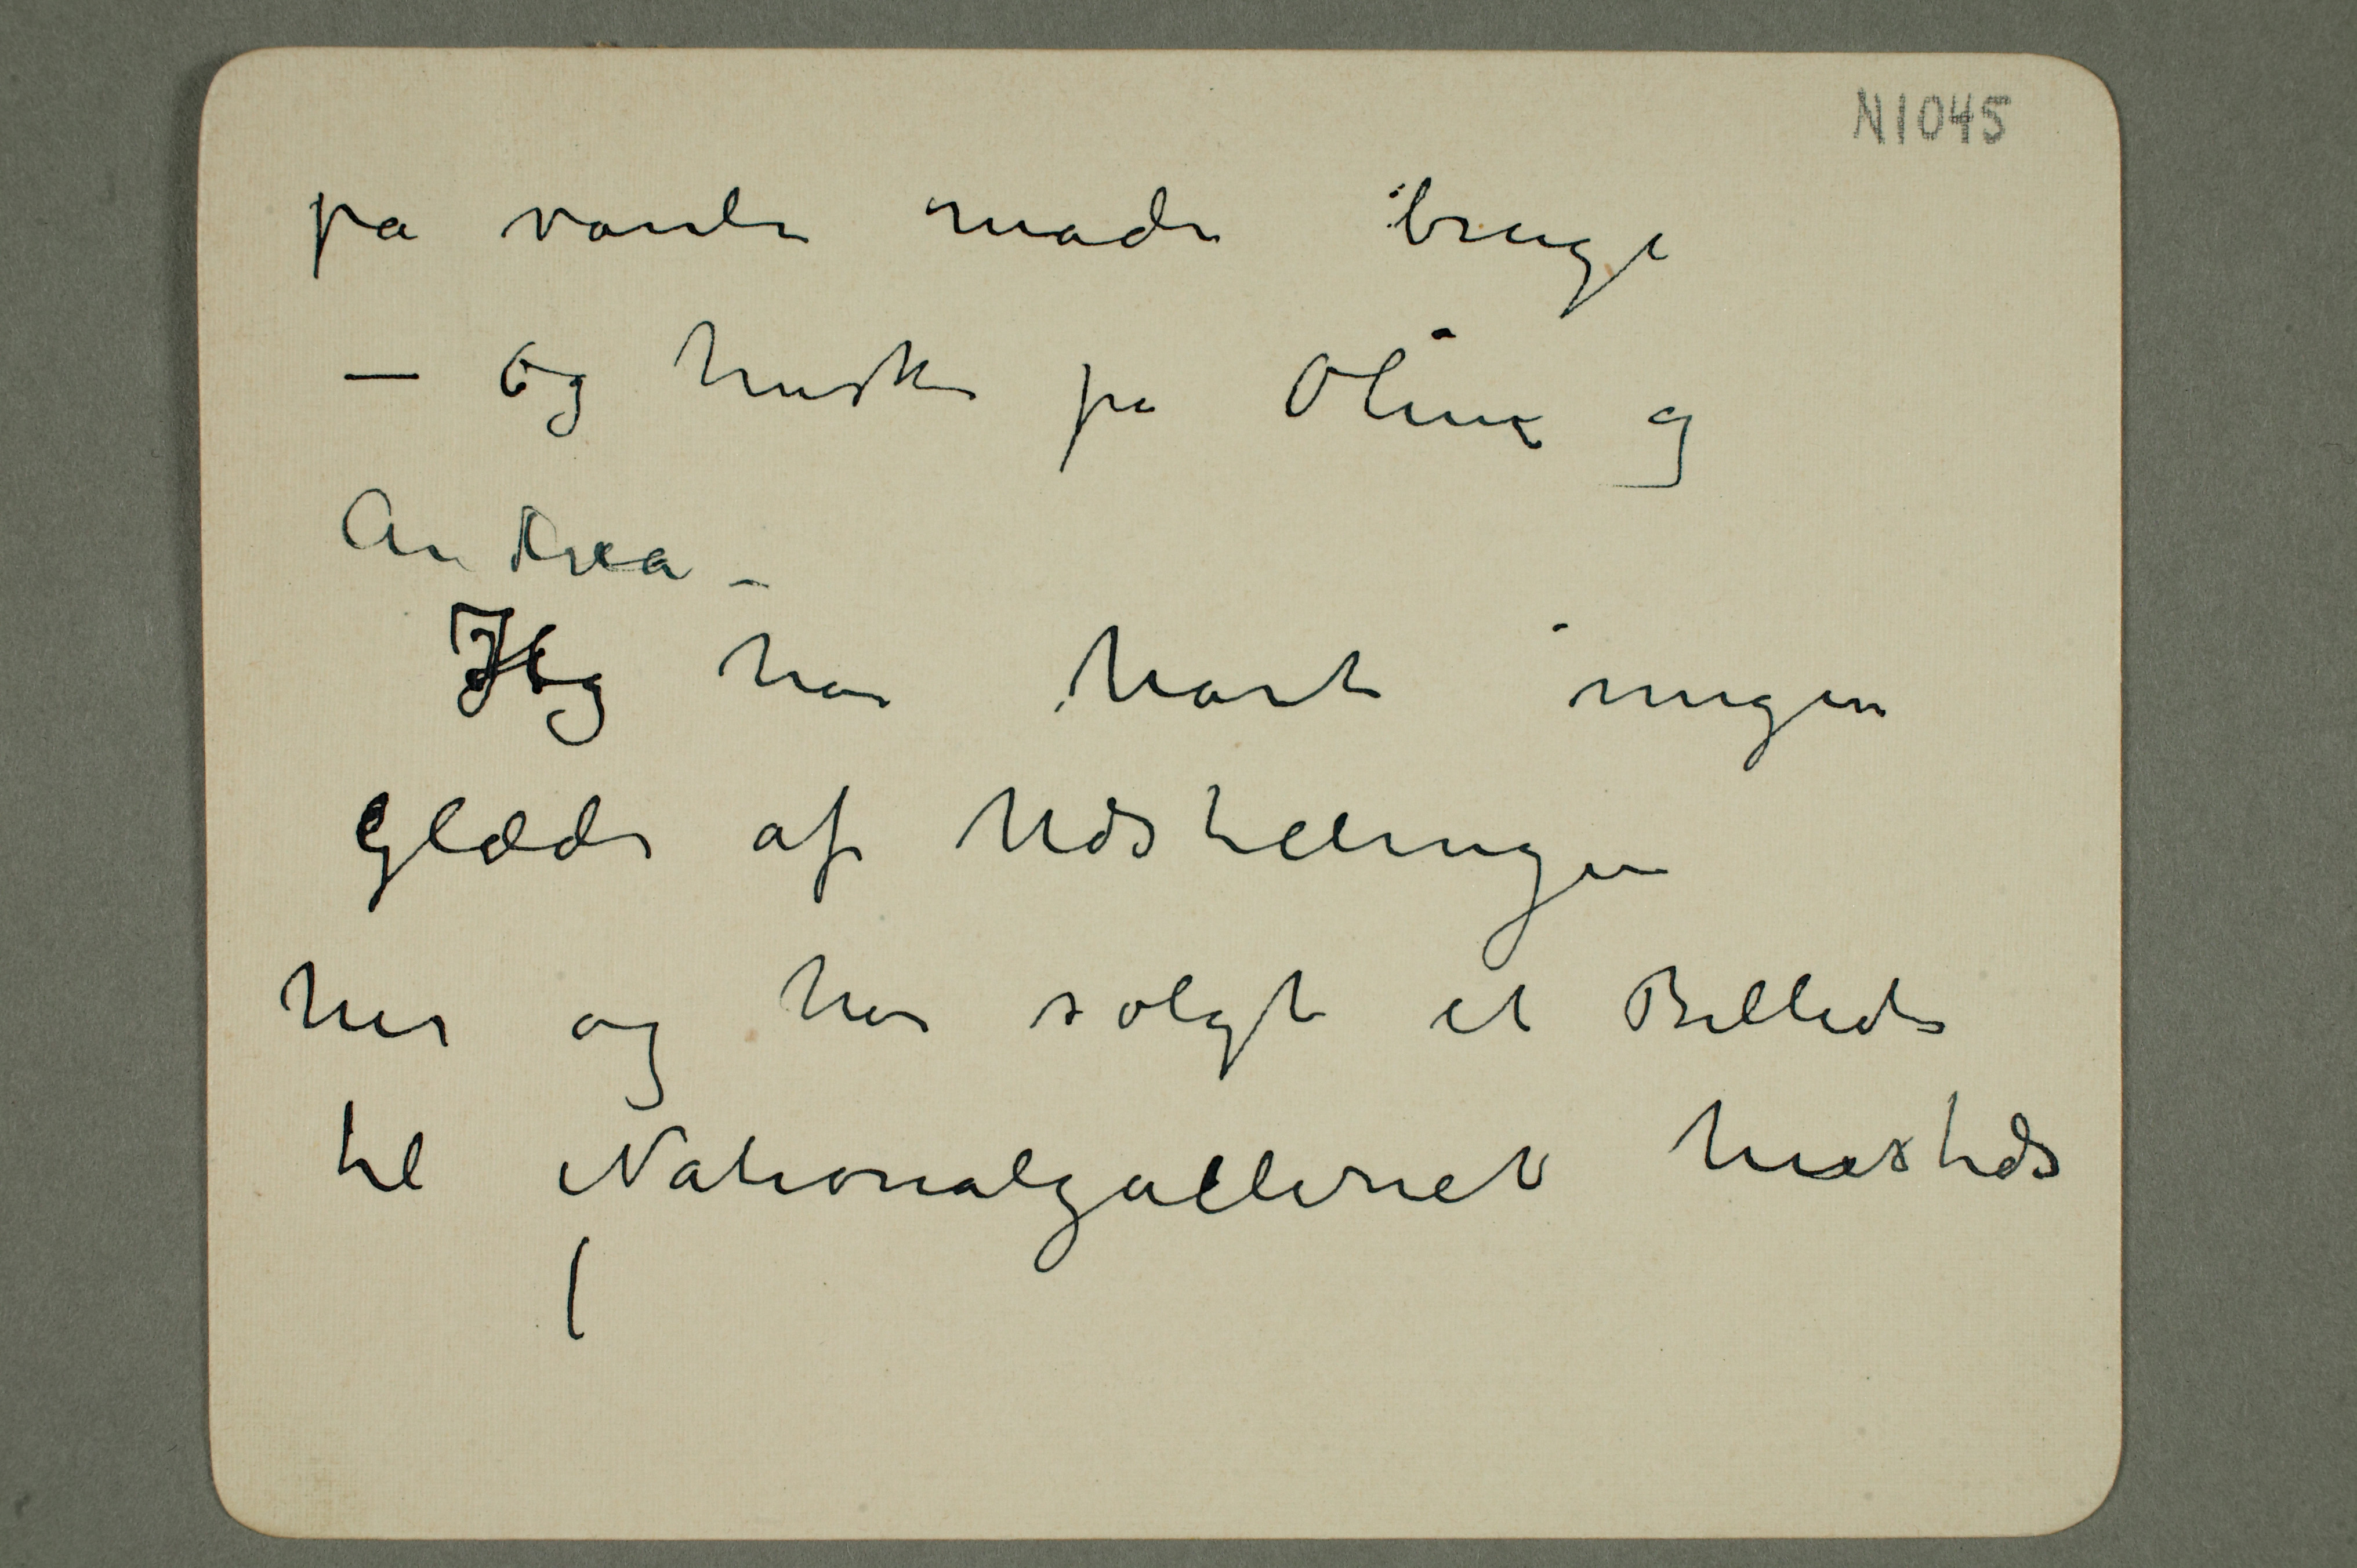 N1045
på vanlig måde bruge
– og huske på Oline og
Andrea –
Jeg har havt megen
Glæde af Udstillingen
her og har solgt et Billede
til Nationalgalleriet